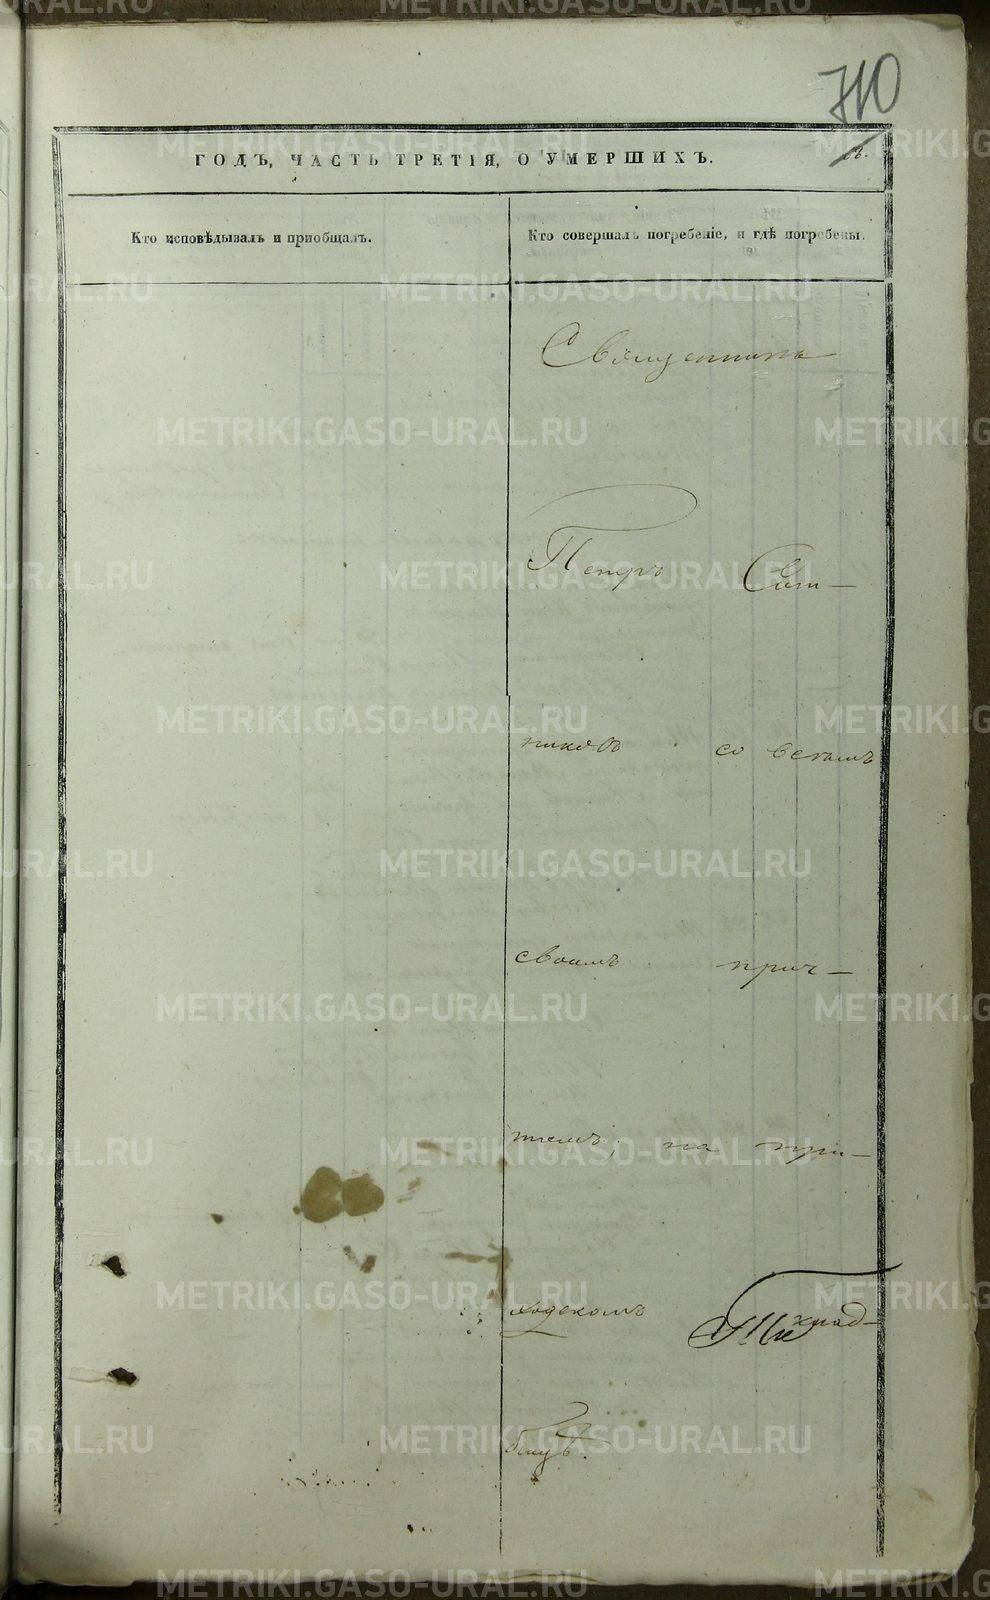 710
ГОДЪ, ЧАСТЬ ТРЕТІЯ, О УМЕРШИХЪ.
Кто исповѣдывалъ и пріобщалъ.
Кто совершалъ погребеніе, и гдѣ погребены.
Священникъ
Петръ
никовъ со всѣмъ
своимъ прич-
томъ, на при-
ходскомъ
бищѣ.
METRIKI.GASO-URAL.RU